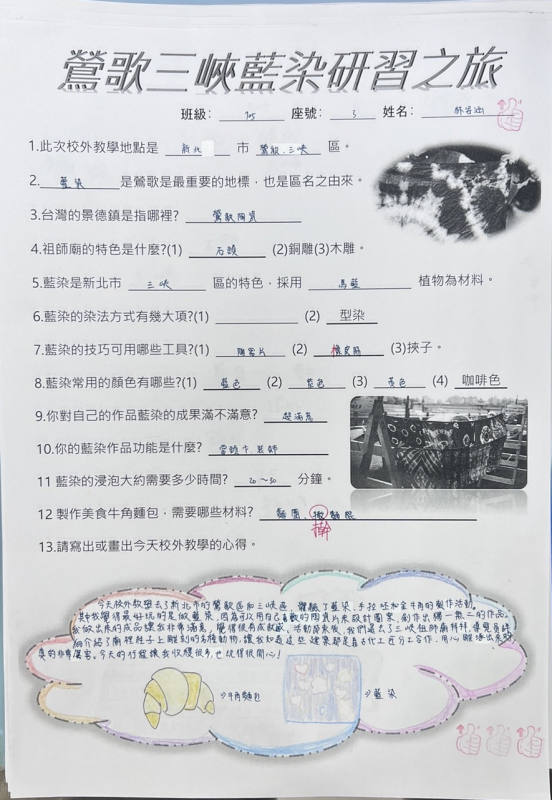 鶯歌三峽藍染研習之旅
班級: 705 座號: 3 姓名:
1.此次校外教學地點是 新北 市 鶯歌、三峽 區。
2. 藍染 是鶯歌是最重要的地標，也是區名之由來。
3.台灣的景德鎮是指哪裡? 鶯歌陶瓷
4.祖師廟的特色是什麼?(1) 石頭 (2)銅雕(3)木雕。
5.藍染是新北市 三峽 區的特色，採用 馬藍 植物為材料。
6.藍染的染法方式有幾大項?(1) (2) 型染
7.藍染的技巧可用哪些工具?(1) 陶瓷片 (2) 橡皮筋 (3)挾子。
8.藍染常用的顏色有哪些?(1) 藍色 (2) 紫色 (3) 黃色 (4) 咖啡色
9.你對自己的作品藍染的成果滿不滿意? 超滿意
10.你的藍染作品功能是什麼?
11 藍染的浸泡大約需要多少時間? 20～30 分鐘。
12 製作美食牛角麵包，需要哪些材料? 麵團、 麵棍
擀
13.請寫出或畫出今天校外教學的心得。
今天校外教學去了新北市的鶯歌區和三峽區，體驗了藍染、手拉坯和金牛角的製作活動。
其中我覺得最好玩的是做藍染，因為可以用自己喜歡的陶瓷片來設計圖案，創作出獨一無二的作品。
我做出來的成品讓我非常滿意，覺得很有成就感。活動結束後，我們還去了三峽祖師廟拜拜，導覽員仔
細介紹了廟裡柱子上雕刻的各種動物，讓我知道這些建築都是由古代工匠分工合作，用心雕琢出來的，
真的非常厲害。今天的行程讓我收穫很多，也玩得很開心!
→牛角麵包
→藍染